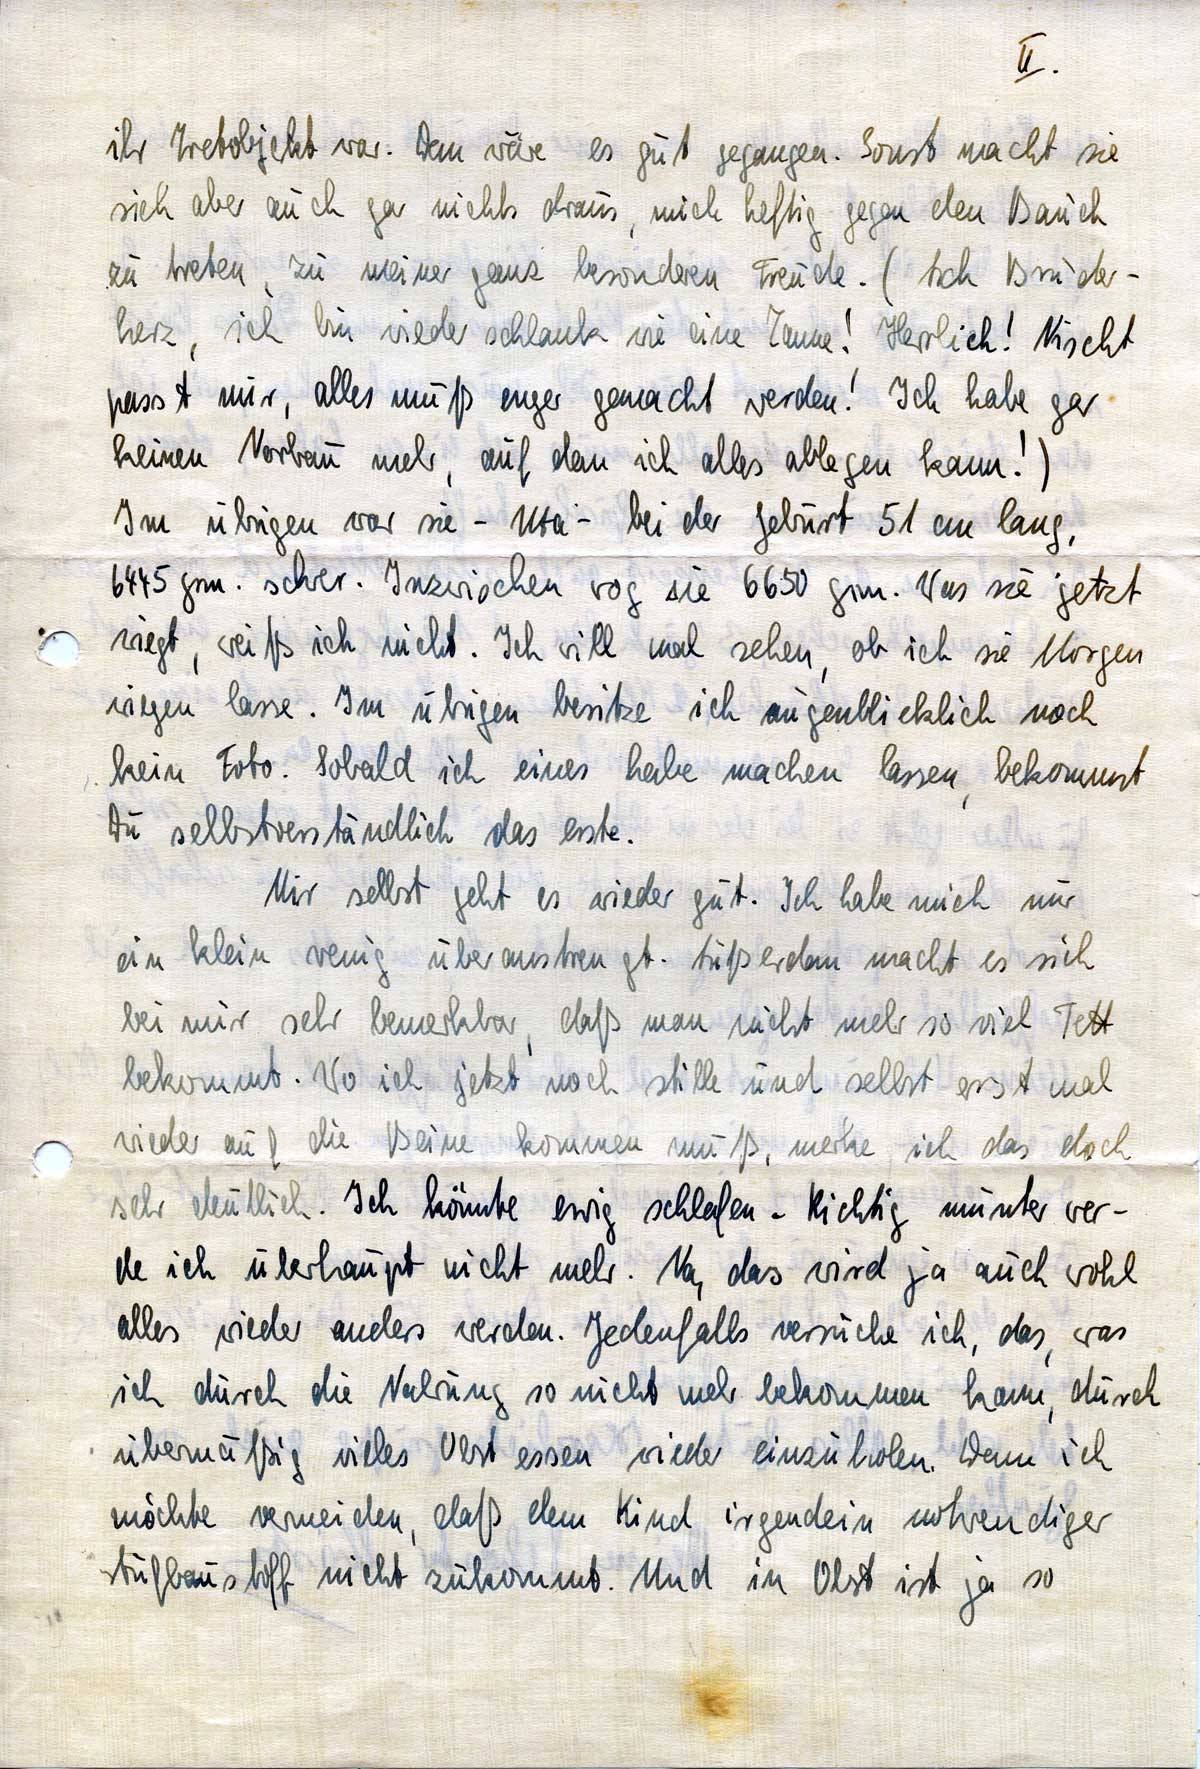 II.
ihr Tretobjekt war. Dem wäre es gut gegangen. Sonst macht sie
sich aber auch gar nichts draus, mich heftig gegen den Bauch
zu treten, zu meiner ganz besonderen Freude. (Ach Bruder-
herz, ich bin wieder schlank wie eine Tanne! Herrlich! Nischt
passt mir, alles muß enger gemacht werden! Ich habe gar
keinen Vorbau mehr, auf dem ich alles ablegen kann!)
Im übrigen war sie - Uta - bei der Geburt 51 cm lang,
6445 grm. schwer. Inzwischen wog sie 6650 grm. Was sie jetzt
wiegt, weiß ich nicht. Ich will mal sehen, ob ich sie Morgen
wiegen lasse. Im übrigen besitze ich augenblicklich noch
kein Foto. Sobald ich eines habe machen lassen, bekommst
Du selbstverständlich das erste.
Mir selbst geht es wieder gut. Ich habe mich nur
ein klein wenig überanstrengt. Außerdem macht es sich
bei mir sehr bemerkbar, daß man nicht mehr so viel Fett
bekommt. Wo ich jetzt noch stille und selbst erst mal
wieder auf die Beine kommen muß, merke ich das doch
sehr deutlich. Ich könnte ewig schlafen. Richtig munter wer-
de ich überhaupt nicht mehr. Na, das wird ja auch wohl
alles wieder anders werden. Jedenfalls versuche ich, das, was
ich durch die Nahrung so nicht mehr bekommen kann, durch
übermäßig vieles Obst essen wieder einzuholen. Denn ich
möchte vermeiden, daß dem Kind irgendein notwendiger
Aufbaustoff nicht zukommt. Und in Obst ist ja so